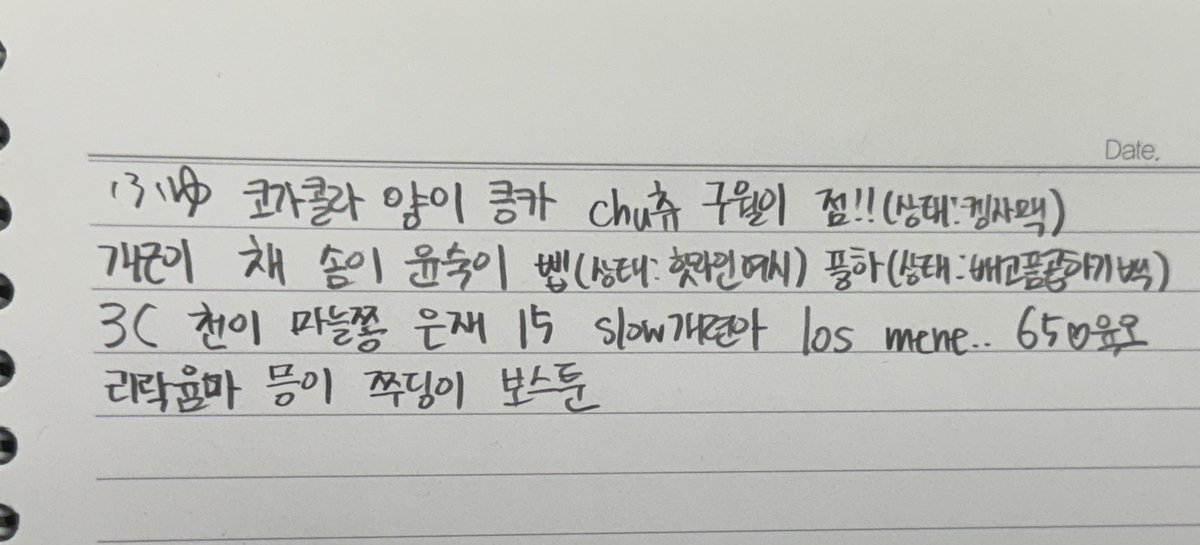 Date.
ふゆ 코가콜라 양이 킁카 chu츄 구월이 점!!(상태:겜사맥)
개군이 채 솜이 윤숙이 삡(상태: 핫라인여시) 플하(상태:배고픔곰아기백)
3C 천이 마늘쫑 은재 15 slow개편아 los mene.. 65
리락윰마 믕이 쭈딩이 보스툰